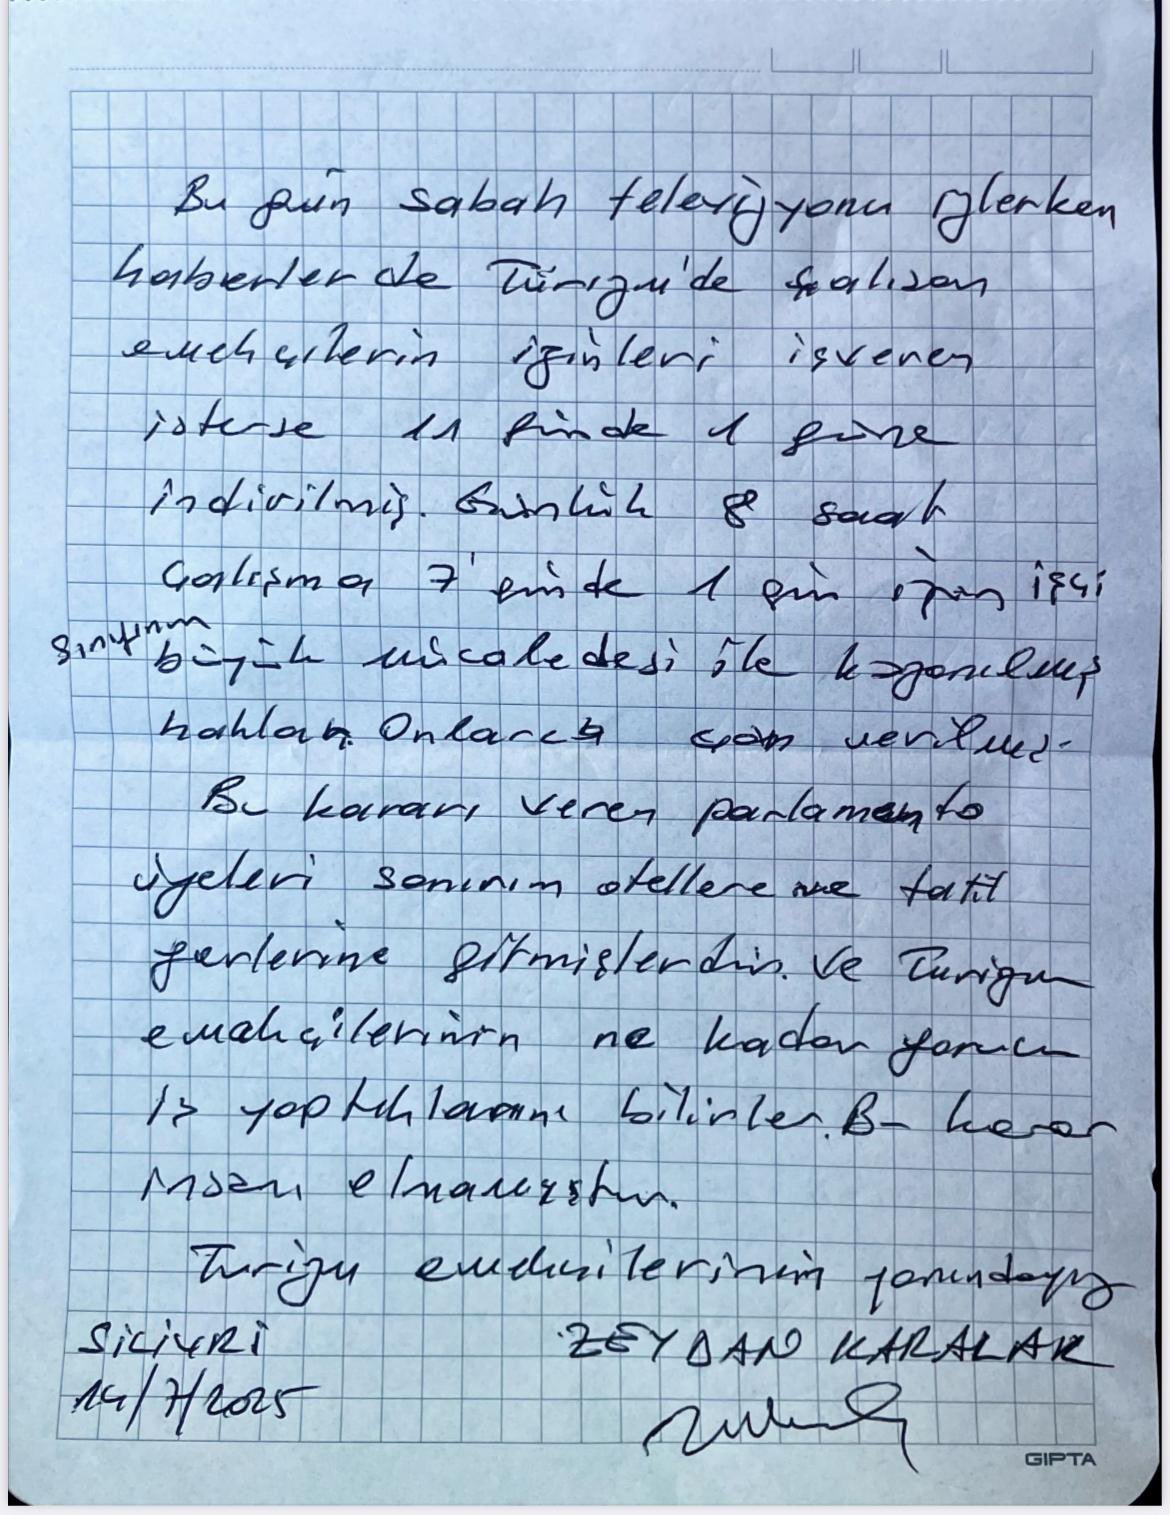 Bu gün sabah televizyonu izlerken
haberlerde Turizm'de çalışan
emekçilerin izinleri işveren
isterse 11 günde 1 güne
indirilmiş. Günlük 8 saat
çalışma 7 günde 1 gün izin işçi
sınıfının
büyük mücadelesi ile kazanılmış
hakları. Onlarca can verilmiş.
Bu kararı veren parlamento
üyeleri sanırım otellere ve tatil
yerlerine gitmişlerdir. Ve Turizm
emekçilerinin ne kadar yorucu
iş yaptıklarını bilirler. Bu karar
insani olmamıştır.
Turizm emekçilerinin yanındayız
SİLİVRİ ZEYDAN KARALAR
14/7/2025
GIPTA